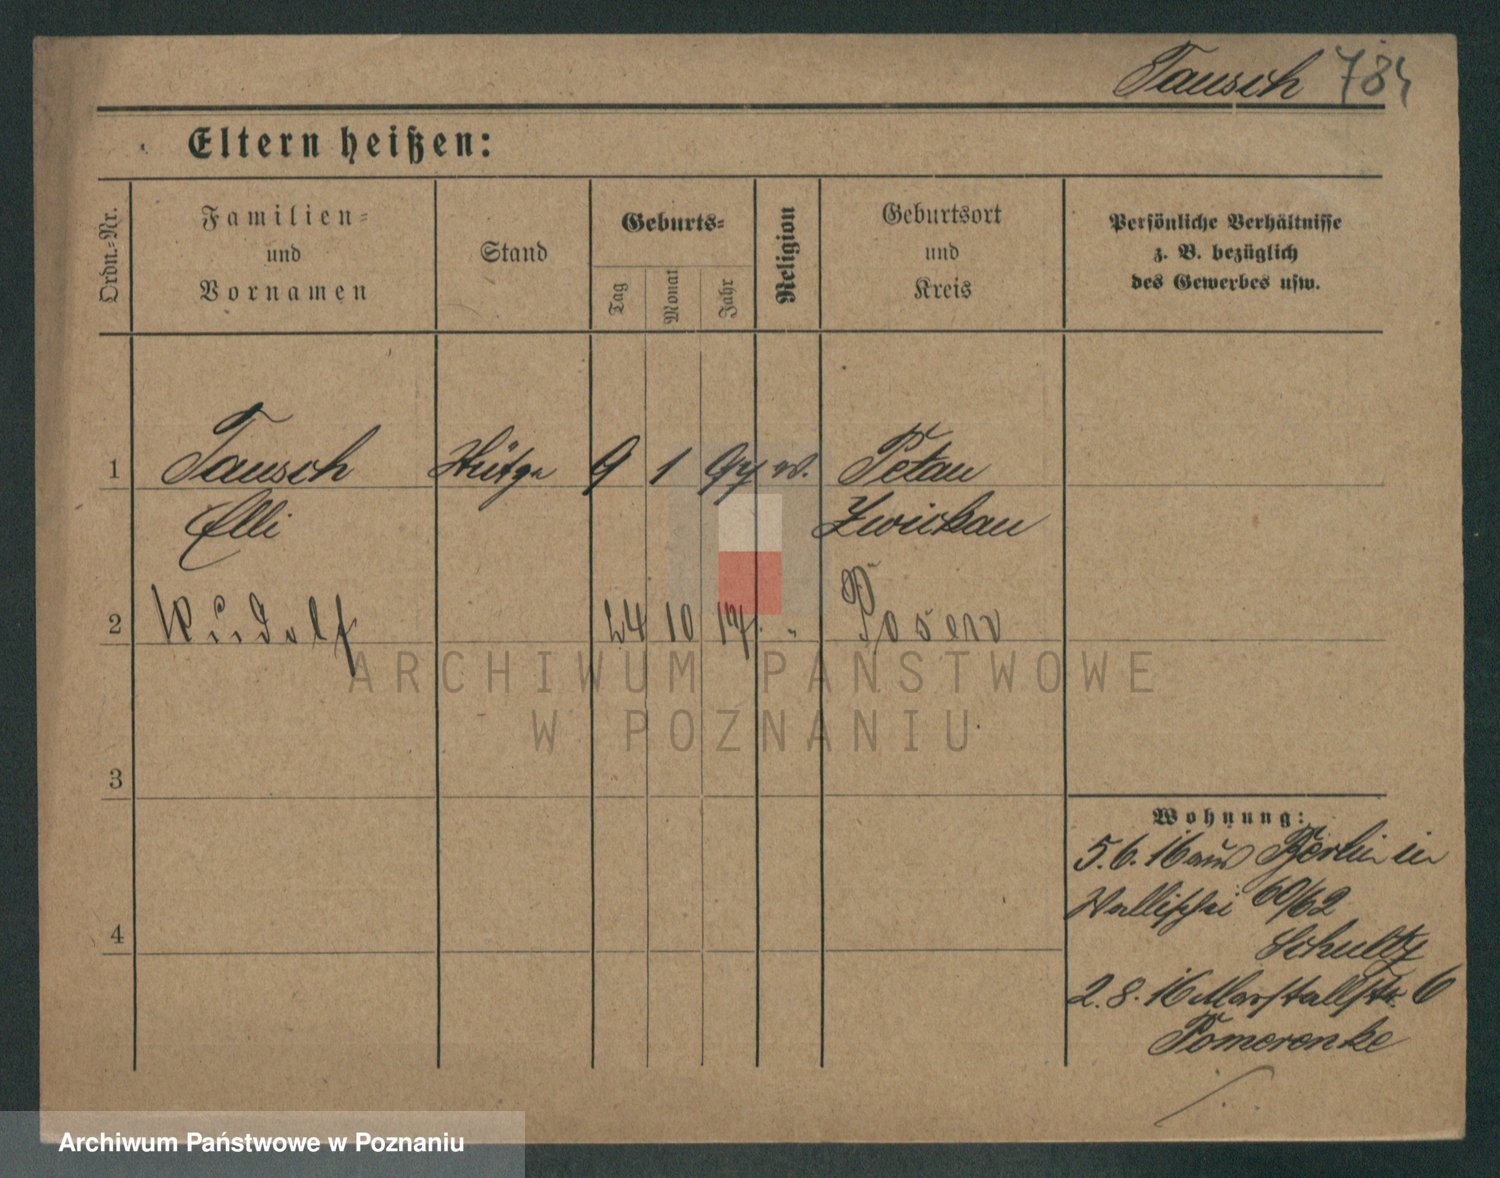 Tausch 784
Eltern heißen:
Ordn.=Nr.
Familien=
und
Vornamen
Stand
Geburts=
Tag
Monat
Jahr
Religion
Geburtsort
und
Kreis
Persönliche Verhältnisse
z. B. bezüglich
des Gewerbes usw.
1 Tausch 9 1 97 Petau
Elli Zwickau
2 Rudolf 24 10 17. " Posen
3
4
Wohnung:
5.6.16 aus Berlin in
Wallischei 60/62
Schultz
2.8.16 Marstallstr. 6
Pomerenke
ARCHIWUM PAŃSTWOWE
W POZNANIU
Archiwum Państwowe w Poznaniu